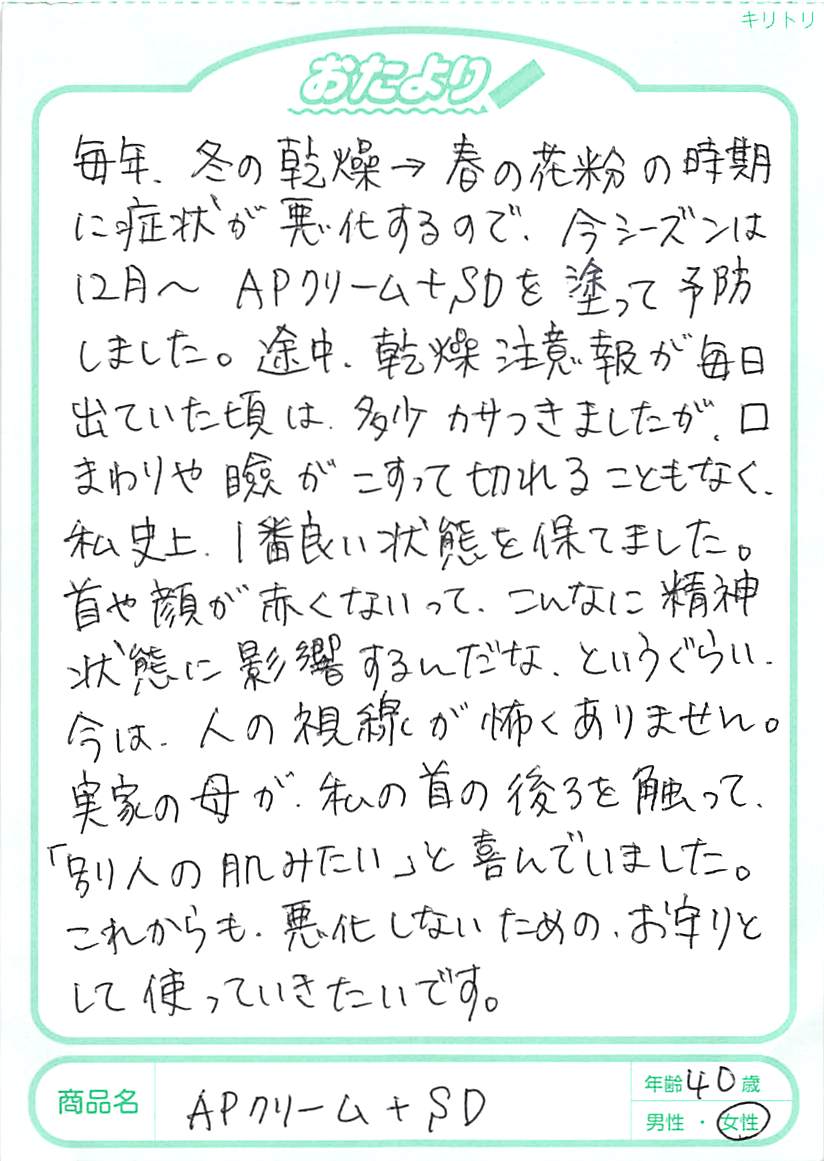 キリトリ
おたより
毎年、冬の乾燥→春の花粉の時期
に症状が悪化するので、今シーズンは
12月～ APクリーム+SDを塗って予防
しました。途中、乾燥注意報が毎日
出ていた頃は、多少カサつきましたが、口
まわりや瞼がこすって切れることもなく、
私史上、1番良い状態を保てました。
首や顔が赤くないって、こんなに精神
状態に影響するんだな、というぐらい、
今は、人の視線が怖くありません。
実家の母が、私の首の後ろを触って、
「別人の肌みたい」と喜んでいました。
これからも、悪化しないための、お守りと
して使っていきたいです。
商品名 APクリーム+SD
年齢40歳
男性・女性